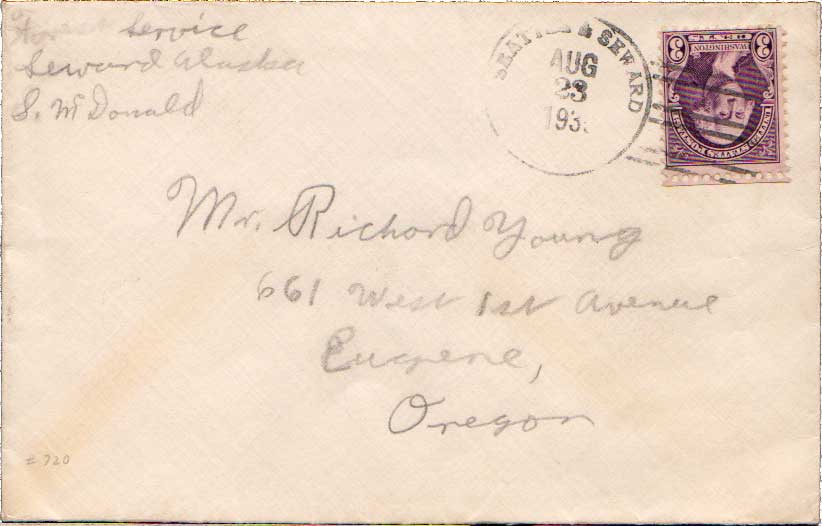 Forest Service
Seward Alaska
S. McDonald
SEATTLE & SEWARD
AUG
23
193
3 CENTS 3
WASHINGTON
UNITED STATES POSTAGE
Mr. Richard Young
661 West 1st Avenue
Eugene,
Oregon
# 720